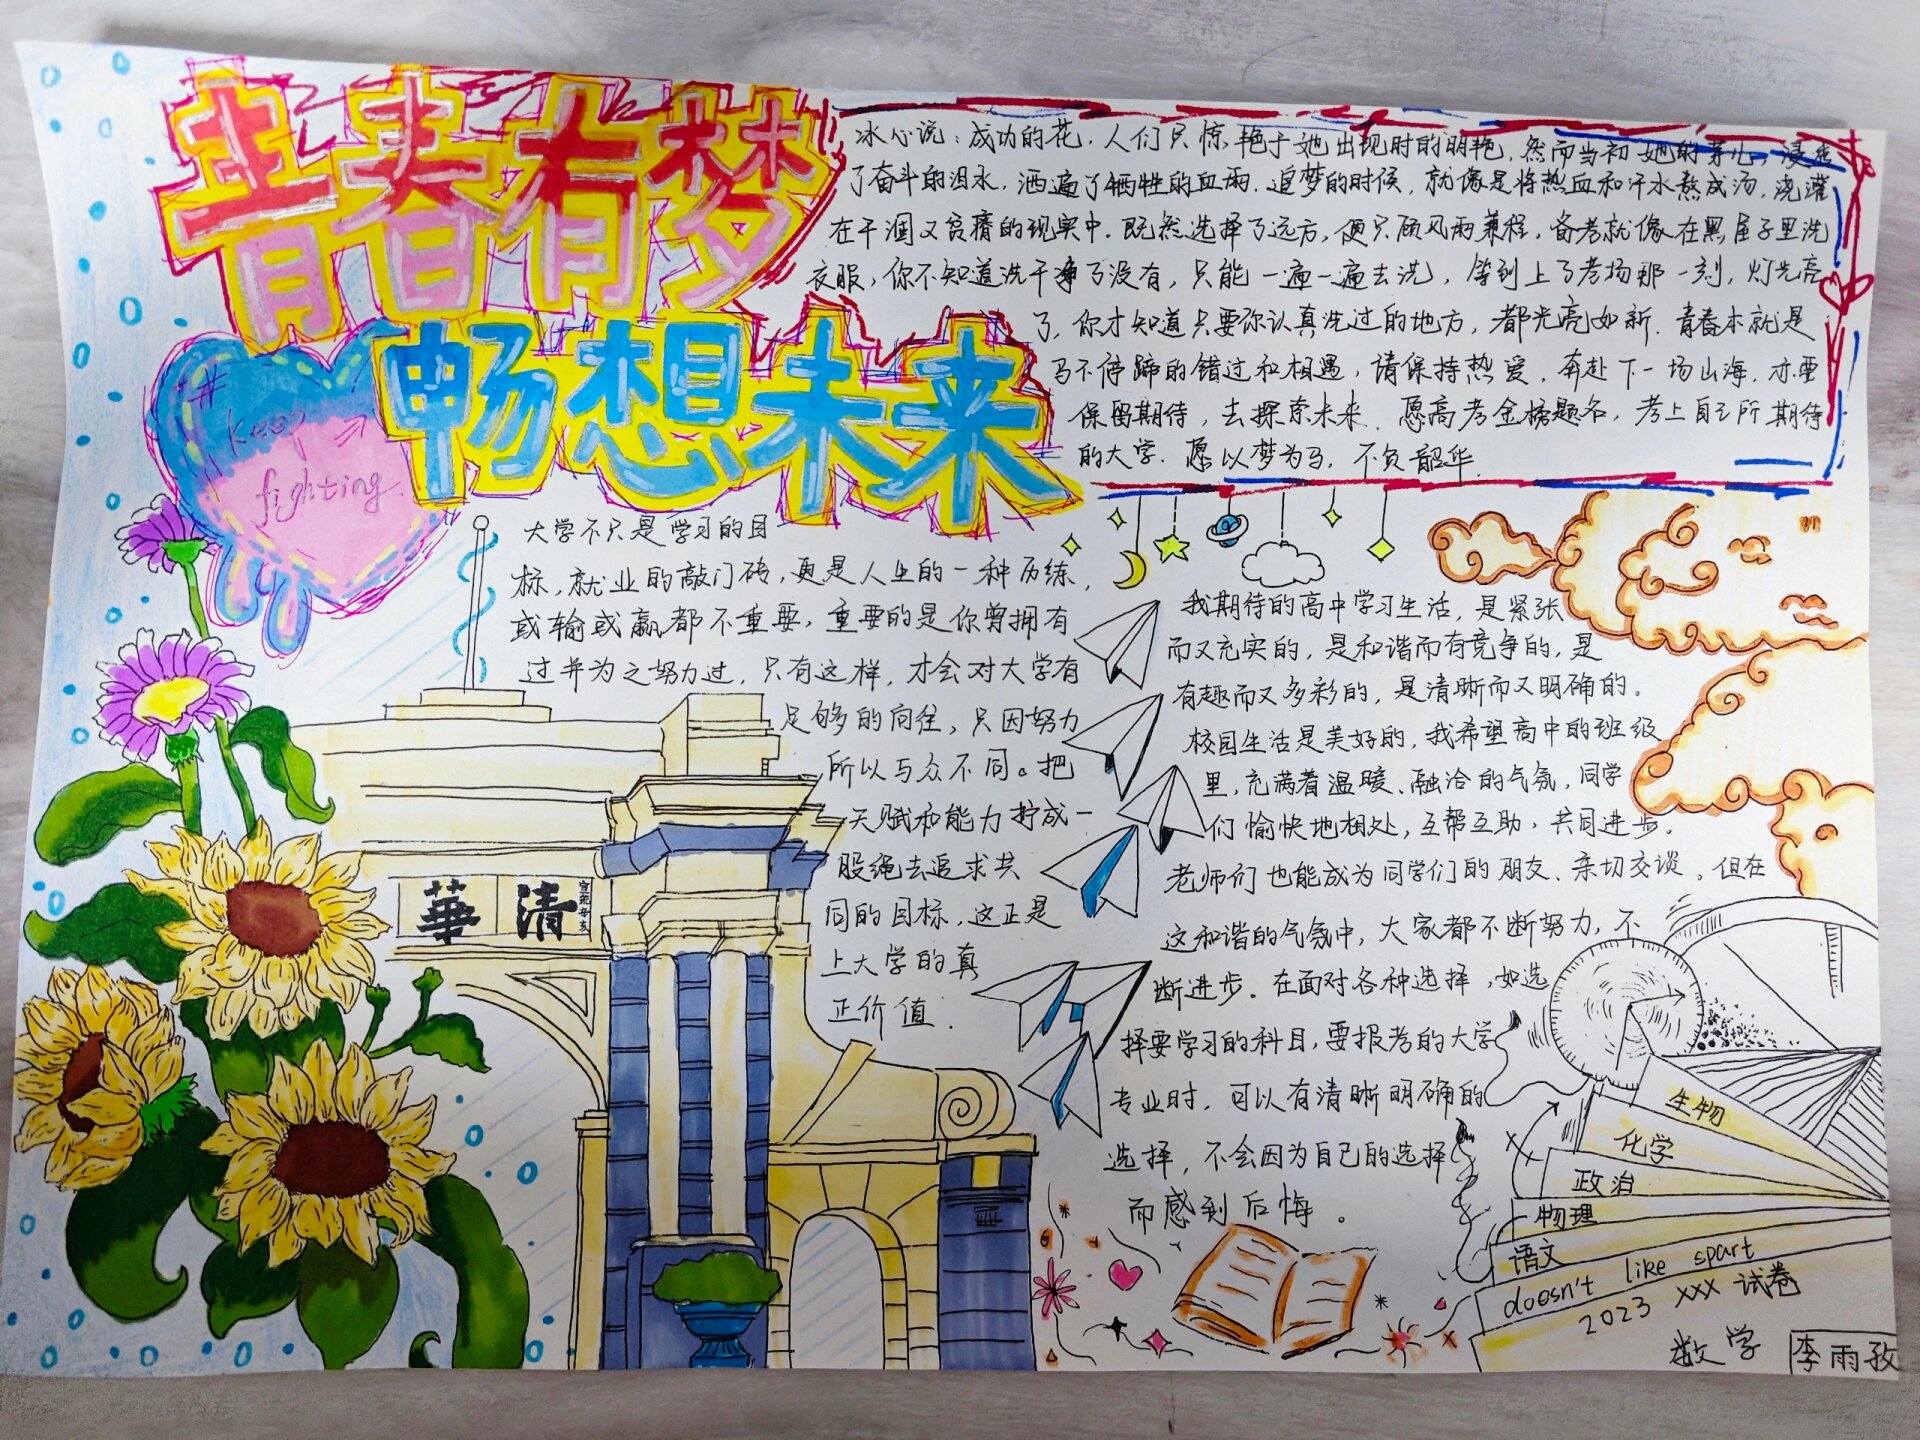 青春有梦
畅想未来
# keep
fighting
冰心说：成功的花，人们只惊艳于她出现时的明艳，然而当初她的芽儿，浸透
了奋斗的泪水，洒遍了牺牲的血雨．追梦的时候，就像是将热血和汗水熬成汤，浇灌
在干涸又贫瘠的现实中．既然选择了远方，便只顾风雨兼程，备考就像在黑屋子里洗
衣服，你不知道洗干净了没有，只能一遍一遍去洗，等到上了考场那一刻，灯光亮
了，你才知道只要你认真洗过的地方，都光亮如新．青春本就是
马不停蹄的错过和相遇，请保持热爱，奔赴下一场山海，亦要
保留期待，去探索未来．愿高考金榜题名，考上自己所期待
的大学．愿以梦为马，不负韶华．
大学不只是学习的目
标，就业的敲门砖，更是人生的一种历练，
或输或赢都不重要，重要的是你曾拥有
过并为之努力过，只有这样，才会对大学有
足够的向往，只因努力
所以与众不同。把
天赋和能力拧成一
股绳去追求共
同的目标，这正是
上大学的真
正价值．
清
華
我期待的高中学习生活，是紧张
而又充实的，是和谐而有竞争的，是
有趣而又多彩的，是清晰而又明确的。
校园生活是美好的，我希望高中的班级
里，充满着温暖、融洽的气氛，同学
们愉快地相处，互帮互助，共同进步．
老师们也能成为同学们的朋友．亲切交谈，但在
这和谐的气氛中，大家都不断努力，不
断进步。在面对各种选择，如选
择要学习的科目，要报考的大学
专业时，可以有清晰明确的
选择，不会因为自己的选择
而感到后悔。
生物
化学
政治
物理
语文
doesn't like spart
2023 xxx 试卷
数学
李雨孜